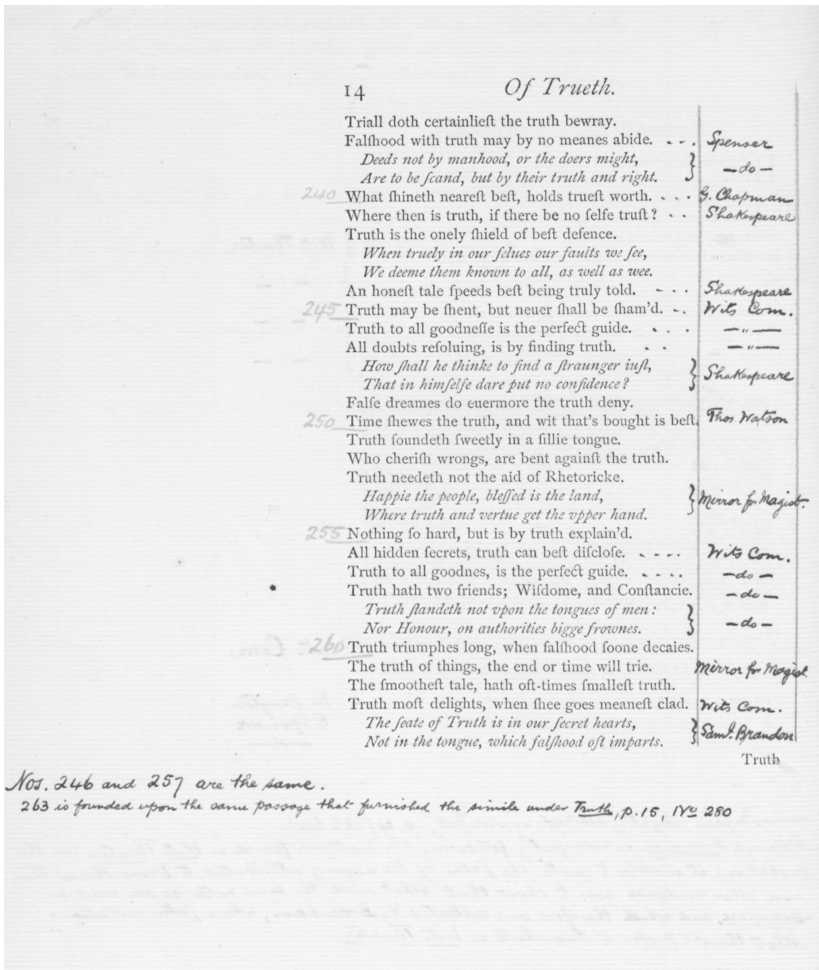 14 Of Trueth.
Triall doth certainlieſt the truth bewray.
Falſhood with truth may by no meanes abide. - - . Spenser
Deeds not by manhood, or the doers might,
Are to be ſcand, but by their truth and right. } —do—
240 What ſhineth neareſt beſt, holds trueſt worth. . . . G. Chapman
Where then is truth, if there be no ſelfe truſt? . . Shakespeare
Truth is the onely ſhield of beſt defence.
When truely in our ſelues our faults we ſee,
We deeme them known to all, as well as wee.
An honeſt tale ſpeeds beſt being truly told. - . . Shakespeare
245 Truth may be ſhent, but neuer ſhall be ſham'd. -. Wits Com.
Truth to all goodneſſe is the perfect guide. . . . —"—
All doubts reſoluing, is by finding truth. . . —"—
How ſhall he thinke to find a ſtraunger iuſt,
That in himſelfe dare put no confidence? } Shakespeare
Falſe dreames do euermore the truth deny.
250 Time ſhewes the truth, and wit that's bought is beſt. Thos. Watson
Truth ſoundeth ſweetly in a ſillie tongue.
Who cheriſh wrongs, are bent againſt the truth.
Truth needeth not the aid of Rhetoricke.
Happie the people, bleſſed is the land,
Where truth and vertue get the vpper hand. } Mirror for Magist.
255 Nothing ſo hard, but is by truth explain'd.
All hidden ſecrets, truth can beſt diſcloſe. . - . . Wits Com.
Truth to all goodnes, is the perfect guide. . . . . —do—
Truth hath two friends; Wiſdome, and Conſtancie. —do—
Truth ſtandeth not vpon the tongues of men:
Nor Honour, on authorities bigge frownes. } —do—
260 Truth triumphes long, when falſhood ſoone decaies.
The truth of things, the end or time will trie. Mirror for Magist
The ſmootheſt tale, hath oft-times ſmalleſt truth.
Truth moſt delights, when ſhee goes meaneſt clad. Wits Com.
The ſeate of Truth is in our ſecret hearts,
Not in the tongue, which falſhood oft imparts. } Saml. Brandon
Truth
Nos. 246 and 257 are the same.
263 is founded upon the same passage that furnished the simile under Truth, p.15, No 280